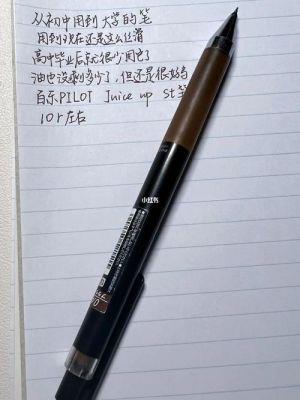 从初中用到大学的笔
用到现在还是这么丝滑
高中毕业后就很少用它了
油也没剩多少了，但还是很好写
百乐PILOT Juice up st笔
10r左右
小红书